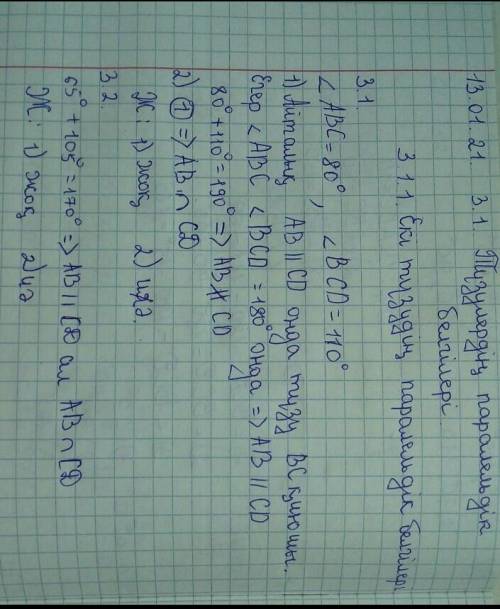 13.01.21. 3.1. Түзулердің паралельдік
белгілері.
3.1.1. Екі түзудің паралельдік белгілері
3.1.
∠ABC = 80°, ∠BCD = 110°
1) Айталық AB || CD онда түзу BC қиюшы.
Егер ∠ABC ∠BCD = 180° онда => AB || CD
80° + 110° = 190° => AB ∦ CD
2) ① => AB ∩ CD
Ж: 1) жоқ 2) иә.
3.2.
65° + 105° = 170° => AB ∦ CD ал AB ∩ CD
Ж: 1) жоқ 2) иә